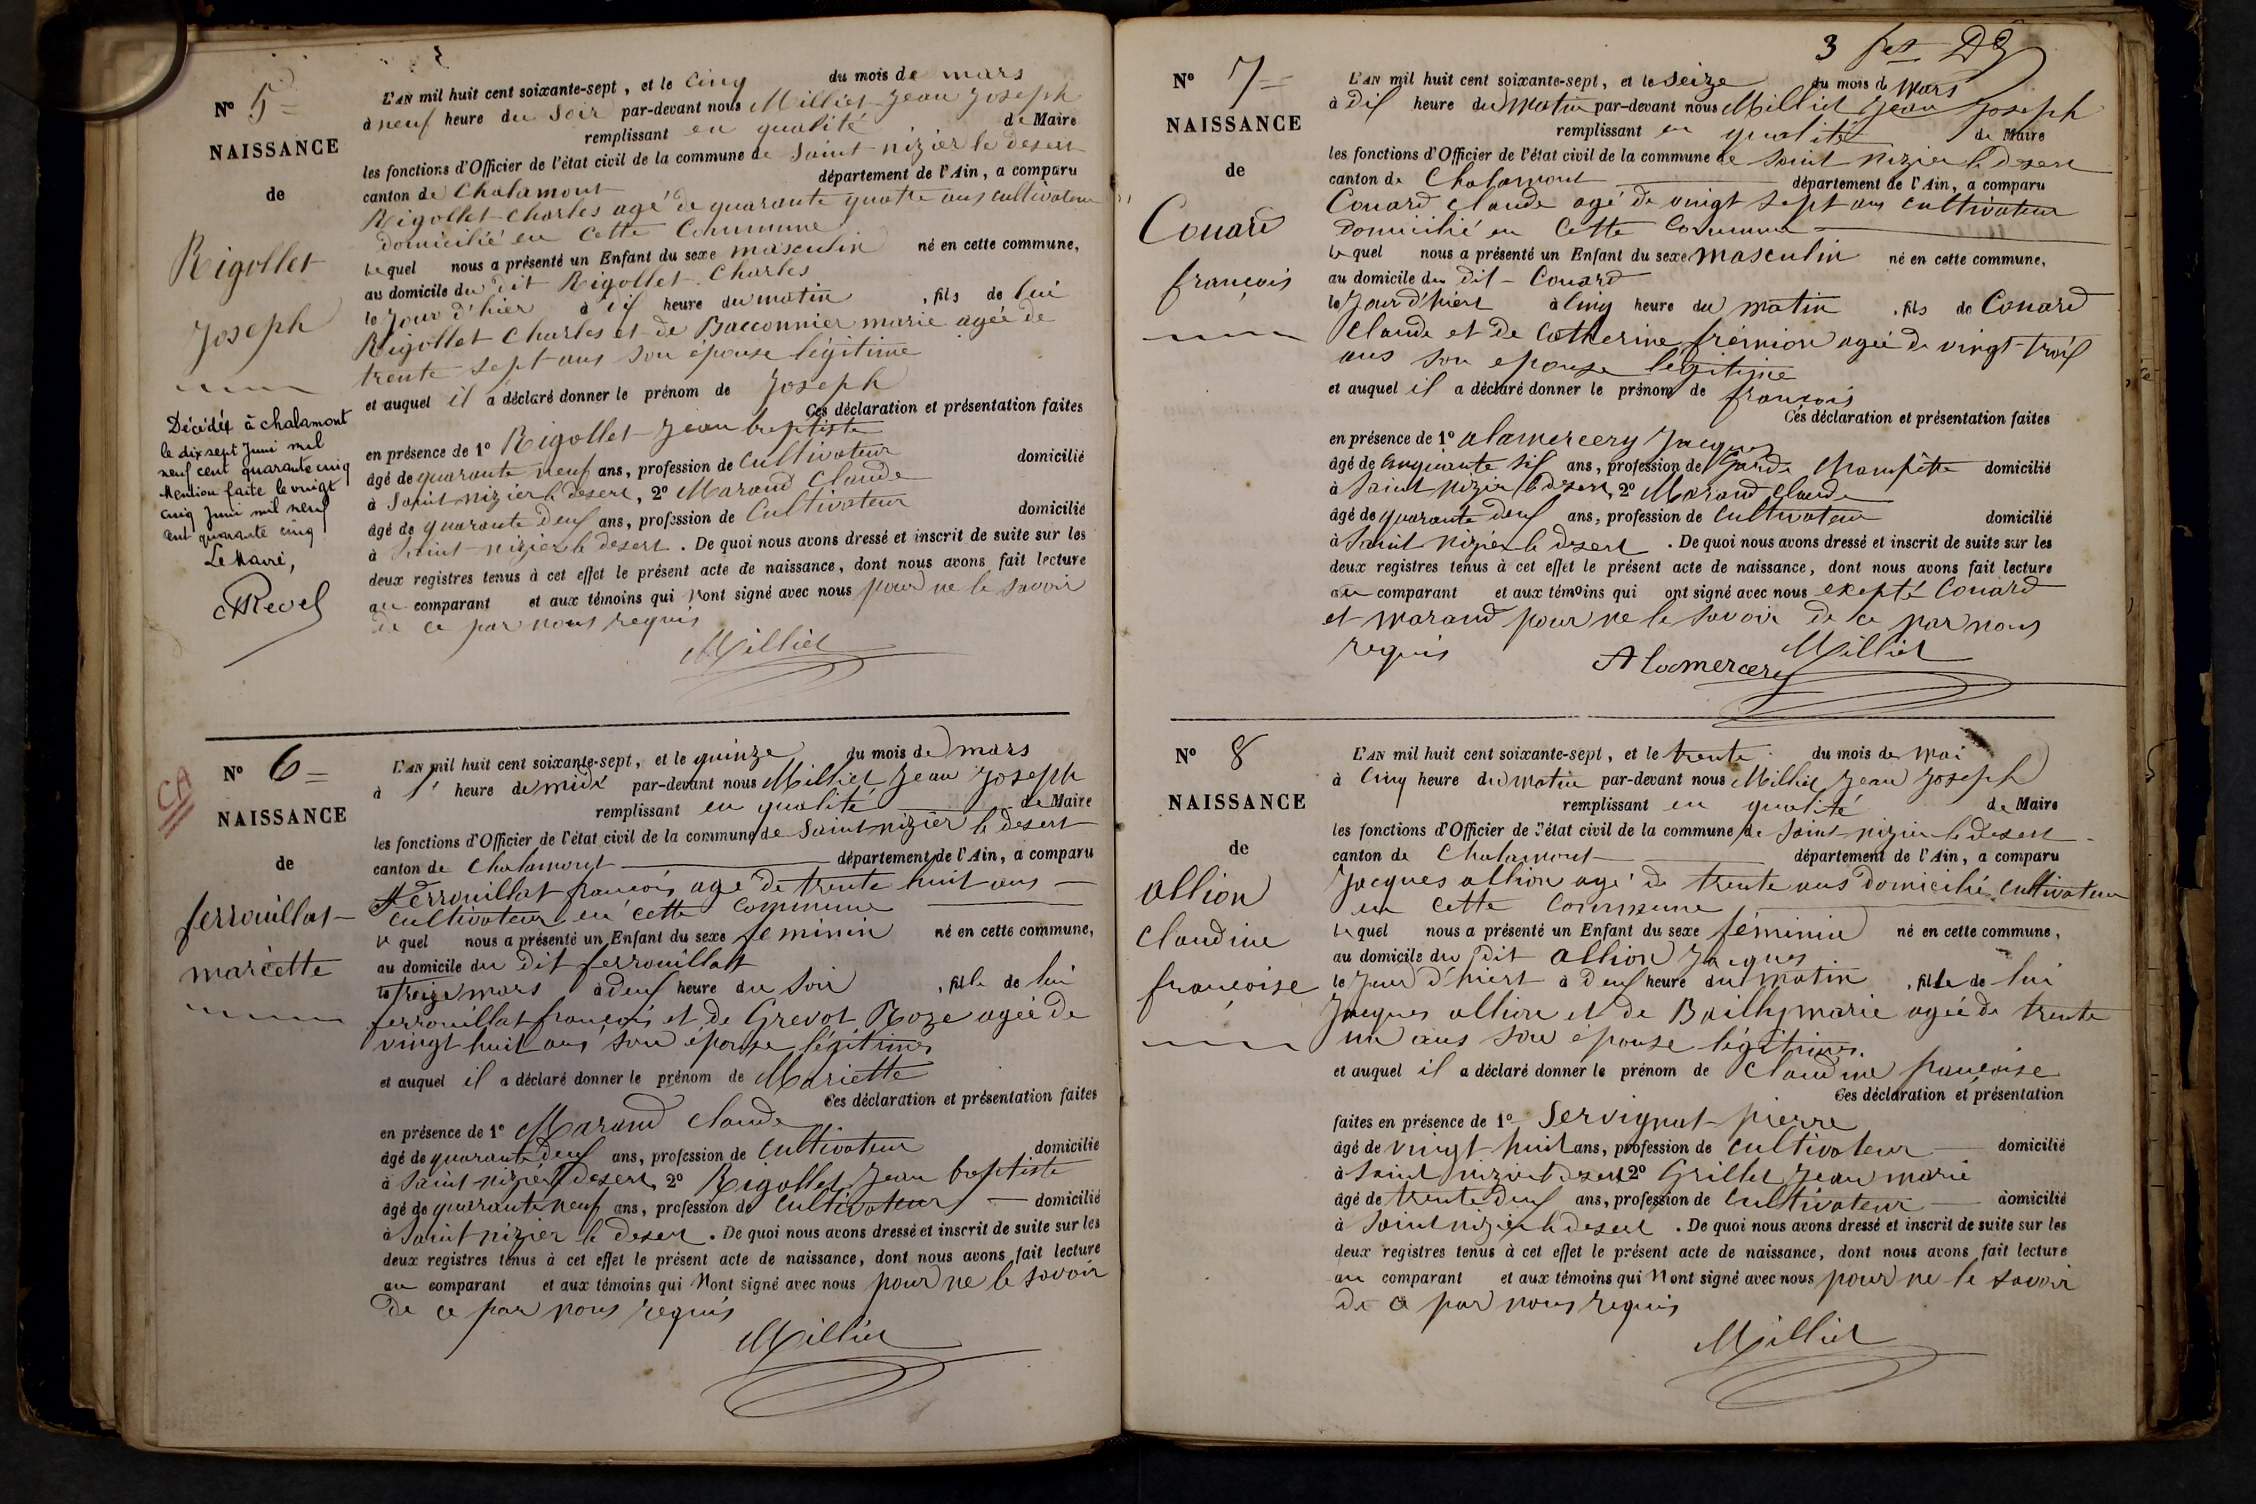 N° 5
NAISSANCE
de
Rigollet
Joseph
Décédé à chalamont
le dix sept Juin mil
neuf cent quarante cinq
Mention faite le vingt
cinq Juin mil neuf
cent quarante cinq
Le Maire,
Revel
L'AN mil huit cent soixante-sept, et le cinq du mois de mars
à neuf heure du soir par-devant nous Milliet Jean Joseph
remplissant en qualité de Maire
les fonctions d'Officier de l'état civil de la commune de Saint nizier le desert
canton de Chalamont département de l'Ain, a comparu
Rigollet Charles agé de quarante quatre ans cultivateur
domicilié en cette Commune
le quel nous a présenté un Enfant du sexe masculin né en cette commune,
au domicile du dit Rigollet Charles
le jour d'hier à dix heure du matin, fils de lui
Rigollet Charles et de Bacconnier marie agée de
trente sept ans son épouse légitime
et auquel il a déclaré donner le prénom de Joseph
Ces déclaration et présentation faites
en présence de 1° Rigollet Jean baptiste
âgé de quarante neuf ans, profession de Cultivateur domicilié
à Saint nizier le desert, 2° Marand Claude
âgé de quarante deux ans, profession de Cultivateur domicilié
à Saint nizier le desert. De quoi nous avons dressé et inscrit de suite sur les
deux registres tenus à cet effet le présent acte de naissance, dont nous avons fait lecture
au comparant et aux témoins qui Nont signé avec nous pour ne le savoir
de ce par nous requis
Milliet
N° 6
CA
NAISSANCE
de
ferrouillat
mariette
L'AN mil huit cent soixante-sept, et le quinze du mois de mars
à 1 heure de midi par-devant nous Milliet Jean Joseph
remplissant en qualité de Maire
les fonctions d'Officier de l'état civil de la commune de Saint nizier le desert
canton de Chalamont département de l'Ain, a comparu
ferrouillat françois agé de trente huit ans
cultivateur en cette commune
le quel nous a présenté un Enfant du sexe feminin né en cette commune,
au domicile du dit ferrouillat
le treize mars à deux heure du soir, fille de lui
ferrouillat françois et de Grevot Roze agée de
vingt huit ans son épouse légitimes
et auquel il a déclaré donner le prénom de Mariette
Ces déclaration et présentation faites
en présence de 1° Marand Claude
âgé de quarante deux ans, profession de Cultivateur domicilié
à Saint nizier le desert, 2° Rigollet Jean baptiste
âgé de quarante neuf ans, profession de cultivateur domicilié
à Saint nizier le desert. De quoi nous avons dressé et inscrit de suite sur les
deux registres tenus à cet effet le présent acte de naissance, dont nous avons fait lecture
au comparant et aux témoins qui Nont signé avec nous pour ne le savoir
de ce par nous requis
Milliet
3
N° 7
NAISSANCE
de
Couard
françois
L'AN mil huit cent soixante-sept, et le seize du mois de Mars
à dix heure du matin par-devant nous Milliet Jean Joseph
remplissant en qualité de Maire
les fonctions d'Officier de l'état civil de la commune de Saint nizier le desert
canton de Chalamont département de l'Ain, a comparu
Couard claude agé de vingt sept ans cultivateur
domicilié en cette commune
le quel nous a présenté un Enfant du sexe masculin né en cette commune,
au domicile du dit Couard
le jour d'hiert à cinq heure du matin, fils de Couard
claude et de Catherine frémion agée de vingt-trois
ans son epouse légitime
et auquel il a déclaré donner le prénom de françois
Ces déclaration et présentation faites
en présence de 1° alamercery Jacques
âgé de cinquante six ans, profession de Garde champêtre domicilié
à Saint nizier le desert, 2° Marand claude
âgé de quarante deux ans, profession de Cultivateur domicilié
à Saint nizier le desert. De quoi nous avons dressé et inscrit de suite sur les
deux registres tenus à cet effet le présent acte de naissance, dont nous avons fait lecture
au comparant et aux témoins qui ont signé avec nous exepté Couard
et marand pour ne le savoir de ce par nous
requis
Alamercery Milliet
N° 8
NAISSANCE
de
allion
claudine
françoise
L'AN mil huit cent soixante-sept, et le trente du mois de mai
à cinq heure du matin par-devant nous Milliet Jean Joseph
remplissant en qualité de Maire
les fonctions d'Officier de l'état civil de la commune de Saint nizier le desert
canton de Chalamont département de l'Ain, a comparu
Jacques allion agé de trente ans domicilié cultivateur
en cette commune
le quel nous a présenté un Enfant du sexe féminin né en cette commune,
au domicile du dit allion Jacques
le jour d'hiert à deux heure du matin, fille de lui
Jacques allion et de Bailly marie agée de trente
un ans son épouse légitimes
et auquel il a déclaré donner le prénom de claudine françoise
Ces déclaration et présentation
faites en présence de 1° Servignat pierre
âgé de vingt-huit ans, profession de cultivateur domicilié
à Saint nizier le desert 2° Grillet Jean marie
âgé de trente deux ans, profession de cultivateur domicilié
à Saint nizier le desert. De quoi nous avons dressé et inscrit de suite sur les
deux registres tenus à cet effet le présent acte de naissance, dont nous avons fait lecture
au comparant et aux témoins qui Nont signé avec nous pour ne le savoir
de ce par nous requis
Milliet